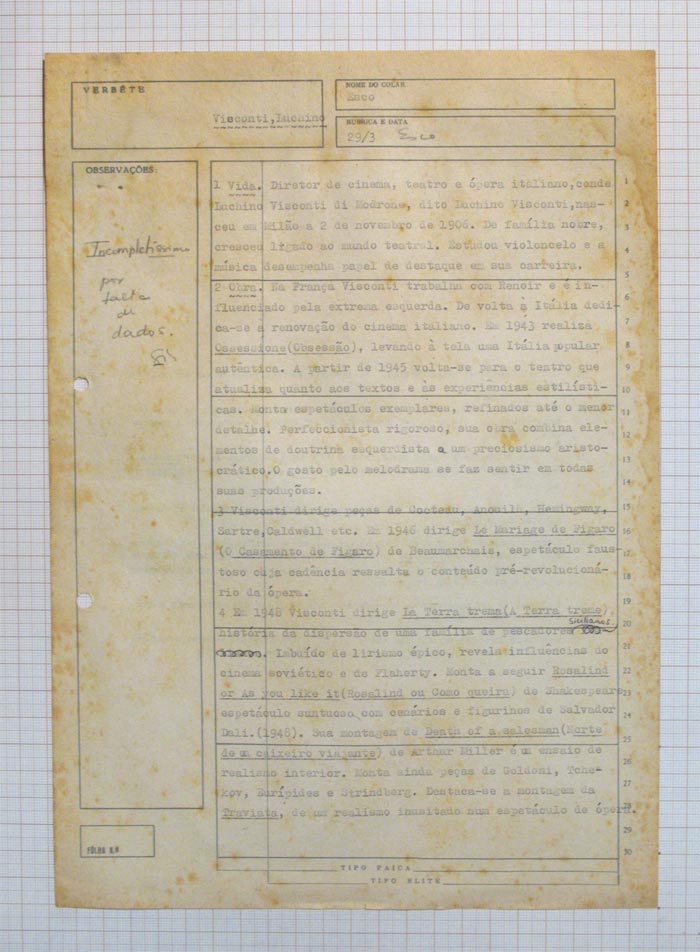 VERBÊTE
Visconti,Luchino
NOME DO COLAB.
Esco
RUBRICA E DATA
29/3 Esco
OBSERVAÇÕES:
Incompletíssimo
por
falta
de
dados.
1 Vida. Diretor de cinema, teatro e ópera italiano,conde
Luchino Visconti di Modrone, dito Luchino Visconti,nas-
ceu em Milão a 2 de novembro de 1906. De família nobre,
cresceu ligado ao mundo teatral. Estudou violoncelo e a
música desempenha papel de destaque em sua carreira.
2 Obra. Na França Visconti trabalha com Renoir e é in-
fluenciado pela extrema esquerda. De volta à Itália dedi-
ca-se à renovação do cinema italiano. Em 1943 realiza
Ossessione(Obsessão), levando à tela uma Itália popular
autêntica. A partir de 1945 volta-se para o teatro que
atualiza quanto aos textos e às experiências estilísti-
cas. Monta espetáculos exemplares, refinados até o menor
detalhe. Perfeccionista rigoroso, sua obra combina ele-
mentos de doutrina esquerdista a um preciosismo aristo-
crático.O gosto pelo melodrama se faz sentir em todas
suas produções.
3 Visconti dirige peças de Cocteau, Anouilh, Hemingway,
Sartre,Caldwell etc. Em 1946 dirige Le Mariage de Figaro
(O Casamento de Figaro) de Beaumarchais, espetáculo faus-
toso cuja cadência ressalta o conteúdo pré-revolucioná-
rio da ópera.
4 Em 1948 Visconti dirige La Terra trema(A Terra treme),
história da dispersão de uma família de pescadores sicilianos
. Imbuído de lirismo épico, revela influências do
cinema soviético e de Flaherty. Monta a seguir Rosalind
or As you like it(Rosalind ou Como queira) de Shakespeare
espetáculo suntuoso com cenários e figurinos de Salvador
Dali.(1948). Sua montagem de Death of a salesman(Morte
de um caixeiro viajante) de Arthur Miller é um ensaio de
realismo interior. Monta ainda peças de Goldoni, Tche-
kov, Eurípides e Strindberg. Destaca-se a montagem da
Traviata, de um realismo inusitado num espetáculo de ópera.
1
2
3
4
5
6
7
8
9
10
11
12
13
14
15
16
17
18
19
20
21
22
23
24
25
26
27
28
29
30
FÔLHA N.º
TIPO PAICA
TIPO ELITE